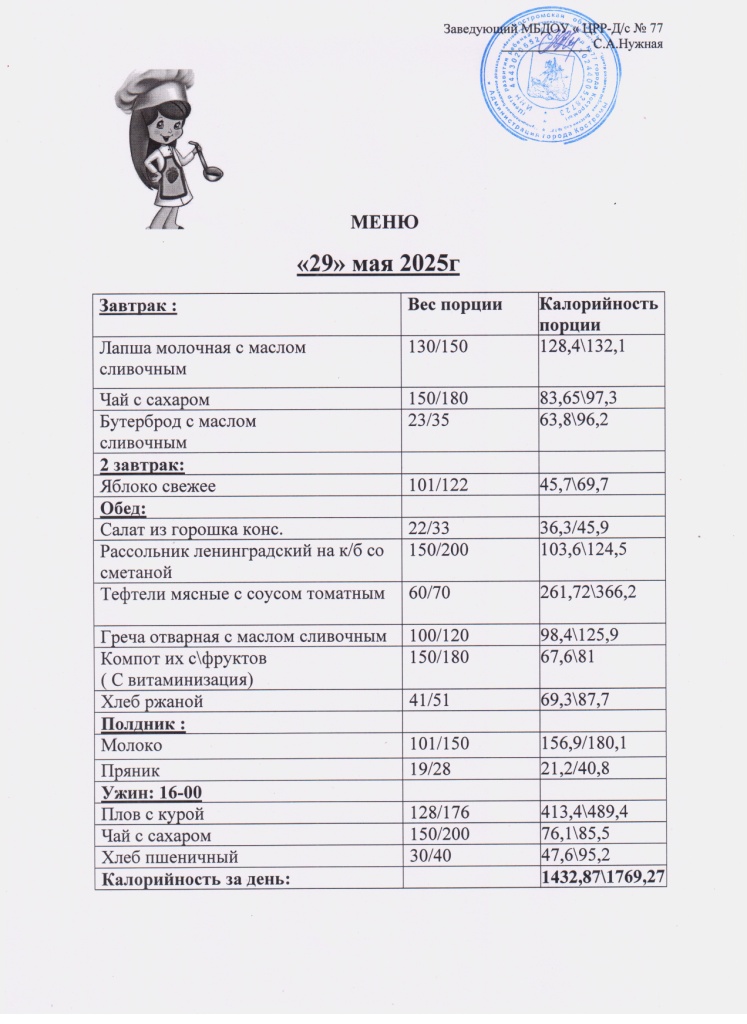 Заведующий МБДОУ « ЦРР-Д/с № 77
С.А.Нужная
МЕНЮ
«29» мая 2025г
Завтрак : Вес порции Калорийность
порции
Лапша молочная с маслом 130/150 128,4\132,1
сливочным
Чай с сахаром 150/180 83,65\97,3
Бутерброд с маслом 23/35 63,8\96,2
сливочным
2 завтрак:
Яблоко свежее 101/122 45,7\69,7
Обед:
Салат из горошка конс. 22/33 36,3/45,9
Рассольник ленинградский на к/б со 150/200 103,6\124,5
сметаной
Тефтели мясные с соусом томатным 60/70 261,72\366,2
Греча отварная с маслом сливочным 100/120 98,4\125,9
Компот их с\фруктов 150/180 67,6\81
( С витаминизация)
Хлеб ржаной 41/51 69,3\87,7
Полдник :
Молоко 101/150 156,9/180,1
Пряник 19/28 21,2/40,8
Ужин: 16-00
Плов с курой 128/176 413,4\489,4
Чай с сахаром 150/200 76,1\85,5
Хлеб пшеничный 30/40 47,6\95,2
Калорийность за день: 1432,87\1769,27